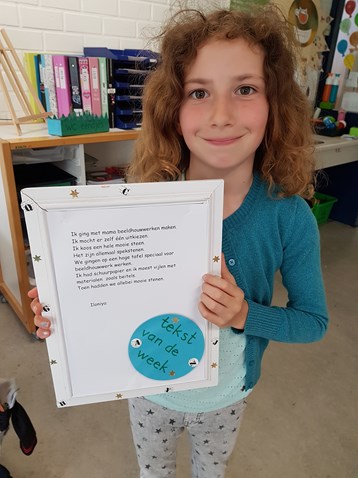 Ik ging met mama beeldhouwwerken maken
Ik mocht er zelf één uitkiezen.
Ik koos een hele mooie steen
Het zijn allemaal spekstenen.
We gingen op een hoge tafel speciaal voor
beeldhouwwerk werken.
Ik had schuurpapier en ik moest vijlen met
materialen zoals beitels.
Toen hadden we allebei mooie stenen
tekst
van de
week